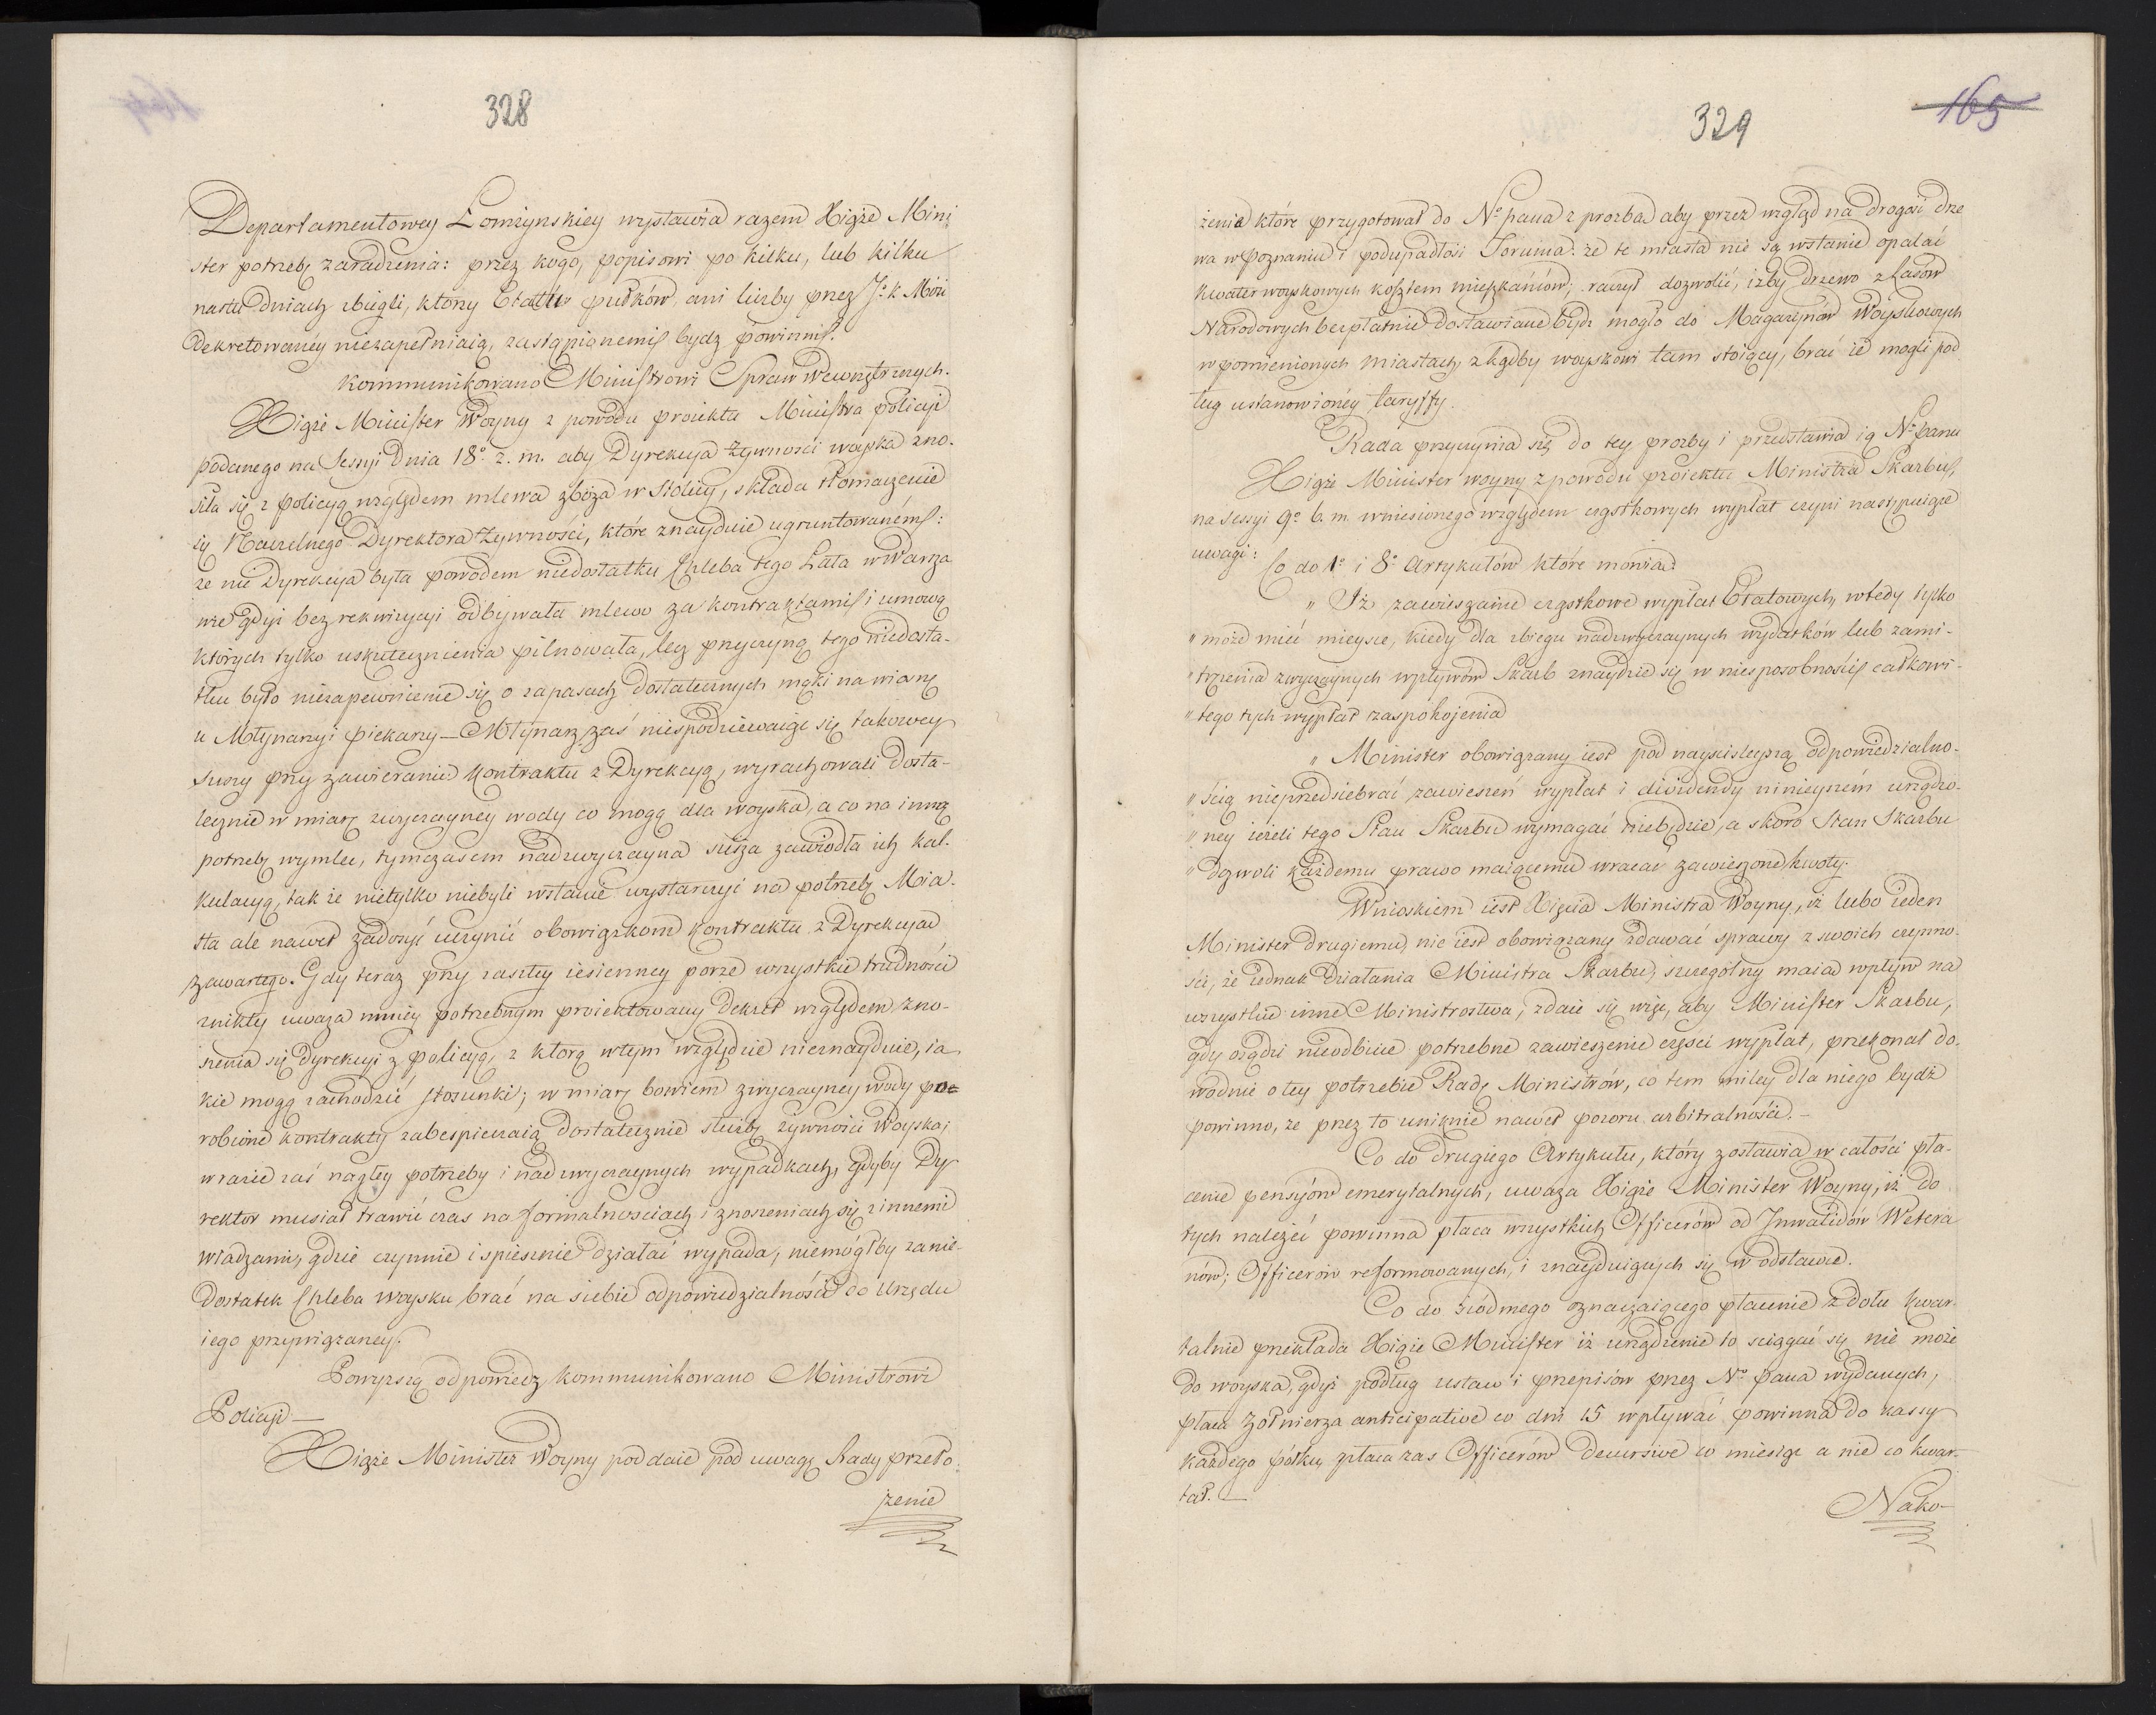 328
Departamentowey Łomżynskiey wystawia razem Xiąże Mini
ster potrzebę zaradzenia: przez kogo, popisowi po kilku, lub kilku
nastu dniach zbiegli, ktorzy Etatów pułków, ani liczby przez Jo. k. Mość
Dekretowaney niezapełniaią, zastąpionemi bydz powinni?
Kommunikowano Ministrowi Spraw Wewnętrznych.
Xiąże Minister Woyny z powodu proiektu Ministra policyi
podanego na Sessyi Dnia 18o z. m. aby Dyrekcya Żywności woyska zno-
siła się z policyą względem mlewa zboża w Stolicy, składa tłomaczenie
się Naczelnego Dyrektora Żywności, które znayduie ugruntowaném:
że nie Dyrekcya była powodem niedostatku Chleba tego Lata w Warsza
wie gdyż bez rekwizycyi odbywała mlewo za kontraktami i umową
których tylko uskutecznienia pilnowała, lecz przyczyną tego niedosta-
tku było niezapewnienie się o zapasach dostatecznych mąki na wiosnę
u Młynarzy i piekarzy — Młynarz zaś niespodziewaiąc się takowey
suszy przy zawieraniu kontraktu z Dyrekcyą, wyrachowali dosta-
tecznie w miarę zwyczayney wody co mogą dla woyska, a co na inną
potrzebę wymleć, tymczasem nadzwyczayna susza zawiodła ich kal-
kulacyą, tak że nietylko niebyli wstanie wystarczyć na potrzebę Mia-
sta ale nawet zadosyć uczynić obowiązkom kontraktu z Dyrekcyą
zawartego. Gdy teraz przy zaszłey iesienney porze wszystkie trudności
znikły uważa mniey potrzebnym proiektowany Dekret względem zno-
szenia się Dyrekcyi z policyą, z ktorą wtym względzie nieznayduie, ia
kie mogą zachodzić stosunki; w miarę bowiem zwyczayney wody po=
robione kontrakty zabespieczaią dostatecznie służbę żywności Woyska;
w razie zaś nagłey potrzeby i nadzwyczaynych wypadkach, gdyby Dy
rektor musiał trawić czas na formalnosciach i znoszeniach się z innemi
władzami, gdzie czynnie i spiesznie działać wypada, niemógłby za nie-
dostatek Chleba woysku brać na siebie odpowiedzialności do Urzędu
iego przywiązaney.
Powyższą odpowiedz kommunikowano Ministrowi
Policyi —
Xiąże Minister Woyny poddaie pod uwagę Rady przeło-
żenie
329
165
żenia które przygotował do No pana z prozbą aby przez wzgląd na drogość drze
wa w Poznaniu i podupadłosć Torunia: że te miasta nie są wstanie opalać
kwater woyskowych kosztem mieszkańców; raczył dozwolić, iżby drzewo z Lasów
Narodowych bezpłatnie dostawiane bydź mogło do Magazynów Woyskowych
w pomienionych miastach, zkądby woyskowi tam stoiący, brać ie mogli pod
ług ustanowioney taryffy.
Rada przyczynia się do tey prozby i przedstawia ią No panu
Xiąże Minister woyny z powodu proiektu Ministra Skarbu,
na sessyi 9o b. m. wniesionego względem cząstkowych wypłat czyni następuiące
uwagi:
Co do 1o i 8o Artykułów które mówią:
„ Iż zawieszanie cząstkowe wypłat Etatowych, wtedy tylko
„ może mieć mieysce, kiedy dla zbiegu nadzwyczaynych wydatków lub zami-
„ trężenia zwyczaynych wpływów Skarb znaydzie się w niesposobności całkowi-
„ tego tych wypłat zaspokojenia
„ Minister obowiązany iest pod nayscisleyszą odpowiedzialno-
„ ścią nieprzedsiebrać zawieszeń wypłat i dividendy ninieyszém urządzo-
„ ney ieżeli tego Stan Skarbu wymagać niebędzie, a skoro Stan Skarbu
„ dozwoli każdemu prawo maiącemu wracać zawieszone kwoty.
Wnioskiem iest Xięcia Ministra Woyny, iż lubo ieden
Minister drugiemu, nie iest obowiązany zdawać sprawy z swoich czynno-
ści, że iednak działania Ministra Skarbu, szczególny maią wpływ na
wszystkie inne Ministrostwa, zdaie się więc, aby Minister Skarbu,
gdy osądzi nieodbicie potrzebne zawieszenie części wypłat, przekonał do-
wodnie o tey potrzebie Radę Ministrów, co tem miley dla niego bydź
powinno, że przez to uniknie nawet pozoru arbitralności. —
Co do drugiego Artykułu, który zostawia w całości pła-
cenie pensyów emerytalnych, uważa Xiąże Minister Woyny, iż do
tych należeć powinna płaca wszystkich Officerów od Inwalidów Wetera
nów; Officerów reformowanych, i znayduiących się w odstawce.
Co do siódmego oznaczaiącego płacenie z dołu kwar-
talnie przekłada Xiąże Minister iż urządzenie to sciągać się nie może
do woyska, gdyż podług ustaw i przepisów przez No pana wydanych,
płaca Żołnierza anticipative co dni 15 wpływać powinna do kassy
każdego pułku, płaca zas Officerów decursive co miesiąc a nie co kwar-
tał. —
Nako-